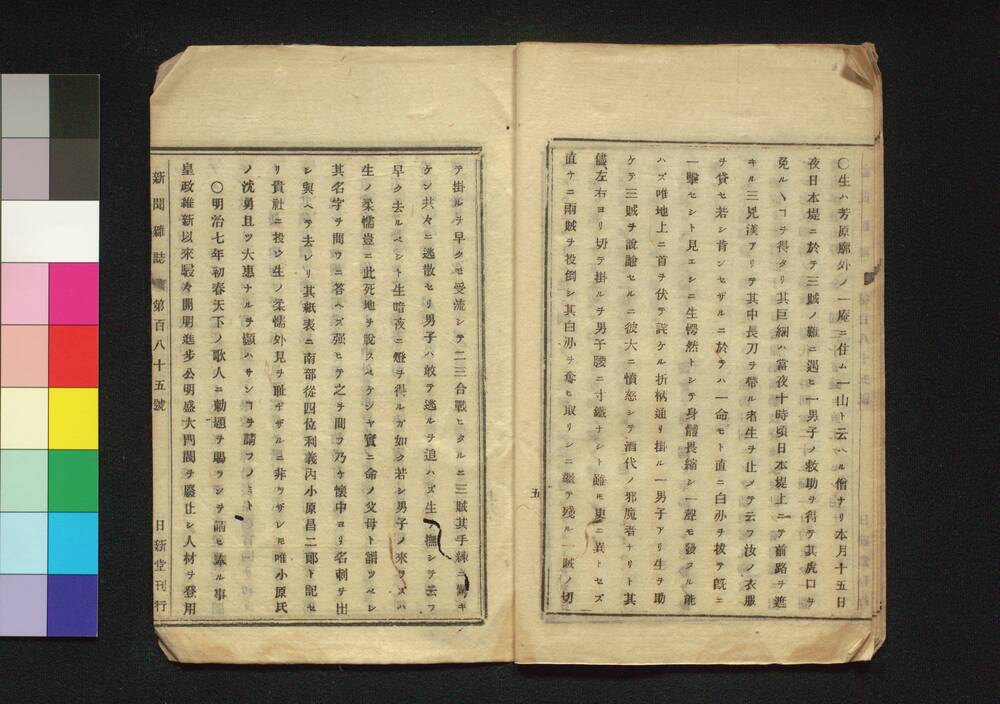 〇生ハ芳原廓外ノ一庵ニ住ム一山ト云ヘル僧ナリ本月十五日
夜日本堤ニ於テ三賊ノ難ニ遇ヒ一男子ノ救助ヲ得テ其虎口ヲ
免ルヽコヲ得タリ其巨細ハ當夜十時頃日本堤上ニテ前路ヲ遮
キル三兇漢アリテ其中長刀ヲ帶ル者生ヲ止メテ云フ汝ノ衣服
ヲ貸セ若シ肯ンセザルニ於テハ一命モト直ニ白刃ヲ拔テ既ニ
一擊セント見エシニ生愕然トシテ身體畏縮シ一聲モ發スル能
ハズ唯地上ニ首ヲ伏テ詫ケル折柄通リ掛ル一男子アリ生ヲ助
ケテ三賊ヲ說諭セルニ彼大ニ憤怒シテ酒代ノ邪魔者ナリト其
儘左右ヨリ切テ掛ルヲ男子腰ニ寸鐵ナシト雖モ更ニ異トセズ
直ケニ兩賊ヲ投倒シ其白刃ヲ奪ヒ取リシニ繼テ殘ル一賊ノ切
五
テ掛ルヲ早クモ受流シテ二三合戰ヒタルニ三賊其手練ニ驚キ
ケン共々ニ逃散セリ男子ハ敢テ逃ルヲ追ハズ生ヲ撫シテ云フ
早ク去ルベシト生暗夜ニ燈ヲ得ルガ如ク若シ男子ノ來ラズハ
生ノ柔懦豈ニ此死地ヲ脫スベケンヤ實ニ命ノ父母ト謂ツベシ
其名字ヲ問フニ答ヘズ强ヒテ之ヲ問フ乃ケ懷中ヨリ名刺ヲ出
シ與ヘテ去レリ其紙表ニ南部從四位利義內小原昌二郞ト記セ
リ貴社ニ投シ生ノ柔懦外見ヲ耻ヂザルニ非ラザレモ唯小原氏
ノ沈勇且ツ大惠ナルヲ顯ハサンコヲ請フノミト
〇明治七年初春天下ノ歌人ニ勅題ヲ賜ラン請ヒ奉ル事
皇政維新以來駸々開明進步公明盛大門閥ヲ廢止シ人材ヲ登用
新聞雜誌 第百八十五號 日新堂刊行